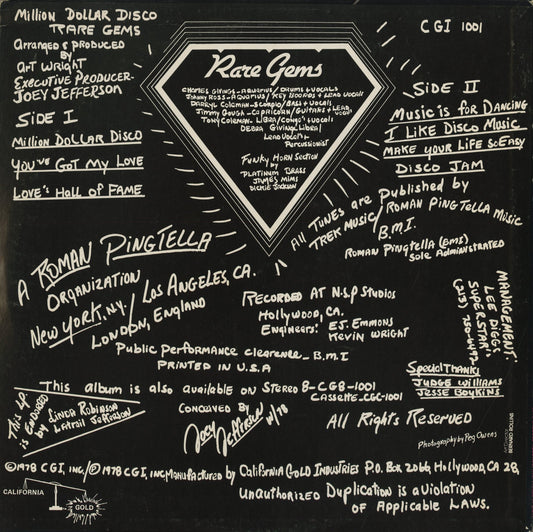 Million Dollar Disco
RARE GEMS
Arranged & PRODUCED
By
Art Wright
Executive Producer-
JOEY JEFFERSON
SIDE I
Million Dollar Disco
You've Got My Love
Love's Hall of Fame
Rare Gems
Charles Givings-Aquarius/Drums & vocals
Johnny Ross-Aquarius/Key Boards + Lead vocals
Darryl Coleman-Scorpio/Bass + Vocals
Jimmy Gough-Capricorn/Guitars + Lead
Vocals
Tony Coleman-Libra/Conga's & Vocals
Debra Giving/Libra/
Lead Vocals
Percussionist
Funky Horn Section
by
Platinum Brass
James Mims
Dickie Jackson
CGI 1001
SIDE II
Music is For Dancing
I Like Disco Music
Make your Life So Easy
Disco Jam
All Tunes are Published by
Trek Music/Roman Pingtella Music
B.M.I.
Roman Pingtella (BMI)
Sole Administrated
A Roman Pingtella
Organization
New York, N.Y./Los Angeles, CA.
London, England
Recorded At N.S.P Studios
Hollywood, CA.
Engineers: E.J. Emmons
Kevin Wright
MANAGEMENT
LEE DIGGS
"SUPERSTAR"
Public Performance clearence-B.M.I
Printed in U.S.A
Special Thanks
Judge Williams
Jesse Boykins
This album is also available on Stereo 8-CG8-1001
Cassette-CGC-1001
This LP.
is Endorsed
by
Linda Robinson
Latril Jefferson
Concieved By
Joey Jefferson 10/78
All Rights Reserved
Photography by Peg Owens
BERNARD ROLLINS
©1978 CGI, INC./℗1978 CGI, INC Manufactured by California Gold Industries P.O. Box 2066, Hollywood, CA 28,
CALIFORNIA
GOLD
Unauthorized Duplication is a Violation
of Applicable Laws.